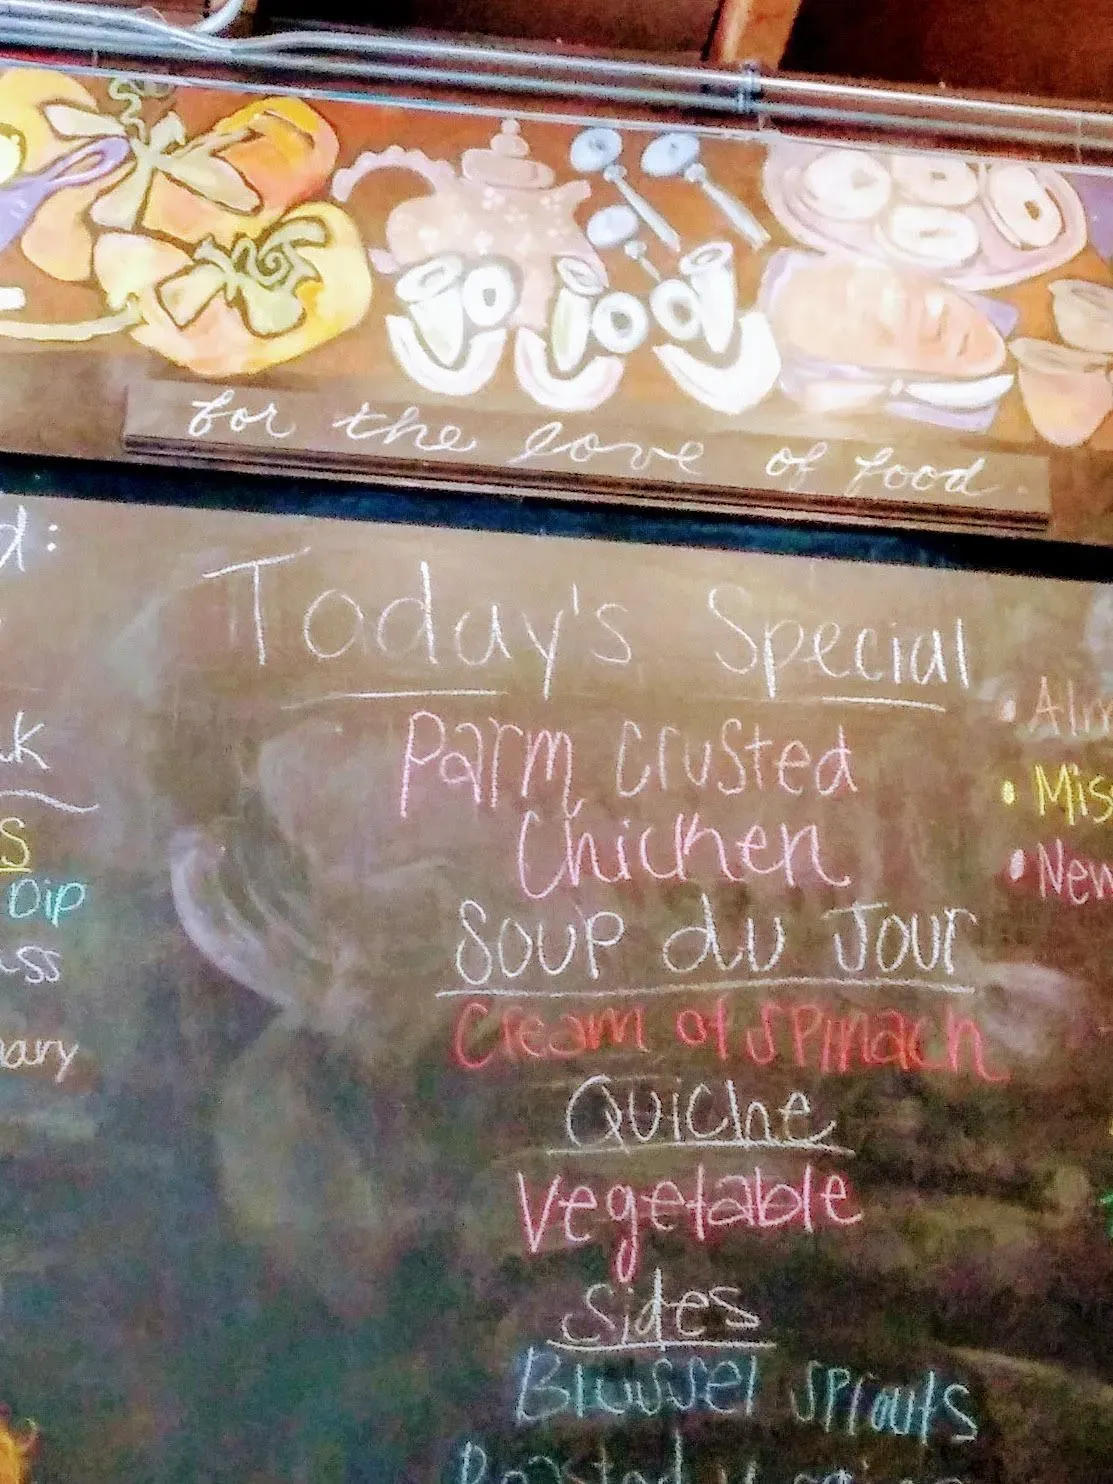 for the love of food.
d:
Today's Special
Parm Crusted
Chicken
Soup du Jour
Cream of Spinach
Quiche
Vegetable
Sides
Brussel Sprouts
Roasted
k
s
Dip
ss
ary
• Alm
• Mis
• New